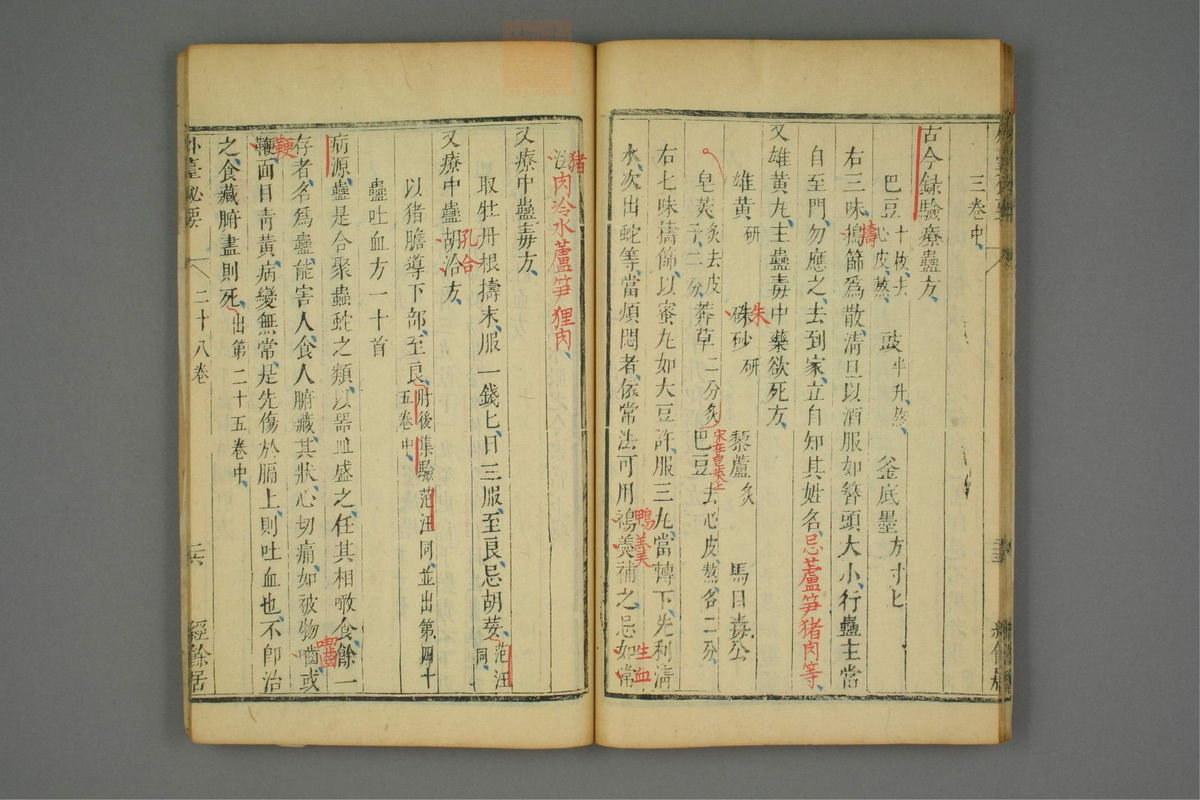 三卷中
古今録驗療蠱方
巴豆十枚去心皮熬 豉半升熬 釜底墨方寸匕
右三味搗篩爲散清旦以酒服如簪頭大小行蠱主當
擣
自至門勿應之去到家立自知其姓名忌蘆笋猪肉等
又雄黄丸主蠱毒中藥欲死方
雄黄研 硃砂研 藜蘆炙 馬目毒公
朱
皂莢炙去皮子二分 莽草二分炙 巴豆去心皮熬各二分
宋在皂莢上
右七味擣篩以蜜丸如大豆許服三丸當轉下先利清
水次出蛇等當煩悶者依常法可用鴆羹補之忌如常
鴨羹
生血
法
猪肉冷水蘆笋狸肉
又療中蠱毒方
取牡丹根擣末服一錢匕日三服至良忌胡荽范汪同
又療中蠱胡洽方
孔合
以猪膽導下部至良肘後集驗范汪同並出第四十五卷中
蠱吐血方一十首
病源蠱是合聚蟲蛇之類以器皿盛之任其相噉食餘一
存者名爲蠱能害人食人腑藏其狀心切痛如被物嚙或
齧
鞕面目青黄病變無常是先傷於膈上則吐血也不即治
鞕
之食藏腑盡則死出第二十五卷中
外臺秘要 二十八卷 二六 經餘居